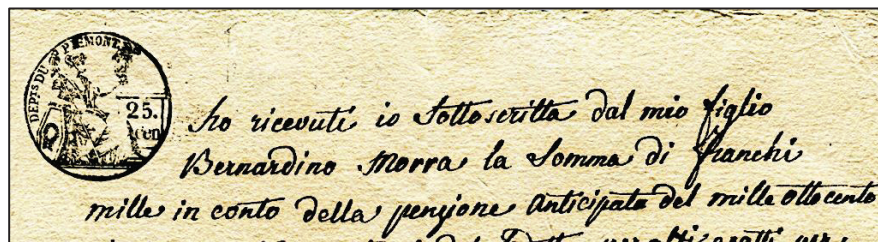 DEPTS DU PIEMONT
25.
cen
ho ricevuti io Sottoscritta dal mio figlio
Bernardino Morra la Somma di franchi
mille in conto della pensione anticipata del mille ottocento